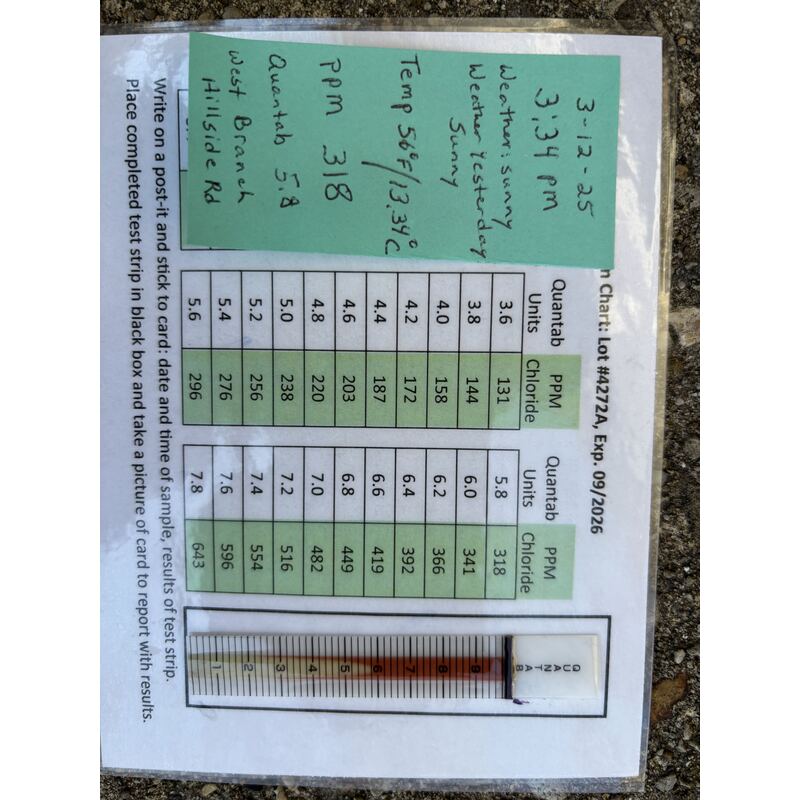 3-12-25
3:34 pm
Weather: sunny
Weather Yesterday
Sunny
Temp 56°F/13.34°C
PPM 318
Quantab 5.8
West Branch
Hillside Rd
n Chart: Lot #4272A, Exp. 09/2026
Quantab Units PPM Chloride
3.6 131
3.8 144
4.0 158
4.2 172
4.4 187
4.6 203
4.8 220
5.0 238
5.2 256
5.4 276
5.6 296
Quantab Units PPM Chloride
5.8 318
6.0 341
6.2 366
6.4 392
6.6 419
6.8 449
7.0 482
7.2 516
7.4 554
7.6 596
7.8 643
QUANTAB
9
8
7
6
5
4
3
2
1
Write on a post-it and stick to card: date and time of sample, results of test strip.
Place completed test strip in black box and take a picture of card to report with results.